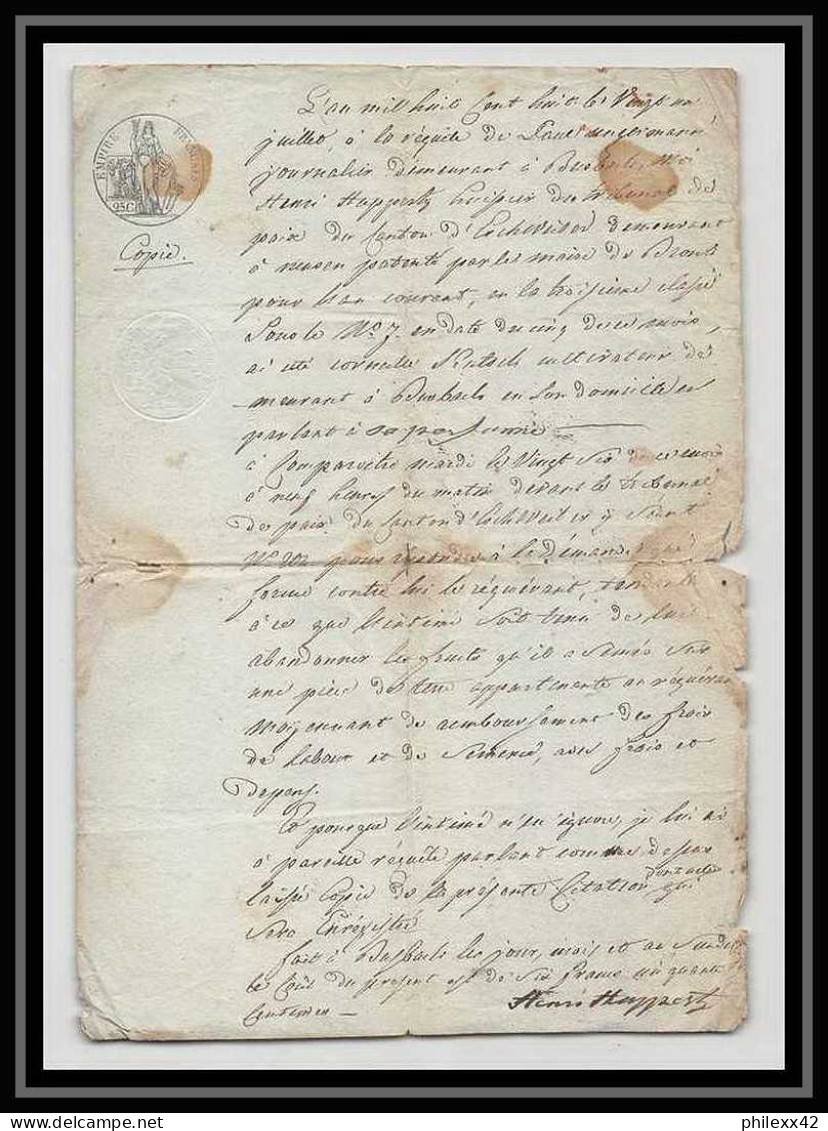 EMPIRE FRANÇAIS
25C
Copie.
L'an mil huit Cent huit le Vingt un
juillet, à la réquete de
journalier demeurant à Moi
Henri Huppertz huissier du tribunal de
paix du Canton d'Eschweiler demeurant
à patenté par le maire de
pour l'an courant, en la troisieme classe
Sous le No. 7. en date du cinq de ce mois,
ai cité Corneille cultivateur de
meurant à en son domicile en
parlant à sa personne
à Comparoitre mardi le Vingt Six de ce mois
à neuf heures du matin devant le tribunal
de paix du Canton d'Eschweiler y Séant
No. pour répondre à la Demande que
forme contre lui le réquérant, tendante
à ce que l'intimé Soit tenu de lui
abandonner les fruits qu'il a Semés Sur
une pièce de terre appartenante au réquérant
Moyennant de remboursement des frais
de labour et de Semence, avec frais et
Depens.
Et pour que l'intimé n'en ignore, je lui ai
à pareille réquête parlant comme dessus
laissé Copie de la présente Citation dont acte qui
Sera Enrégistré
fait à les jour, mois et an Susdits
le Cout du présent est de Six francs
Centimes
Henri Huppertz
philexx42